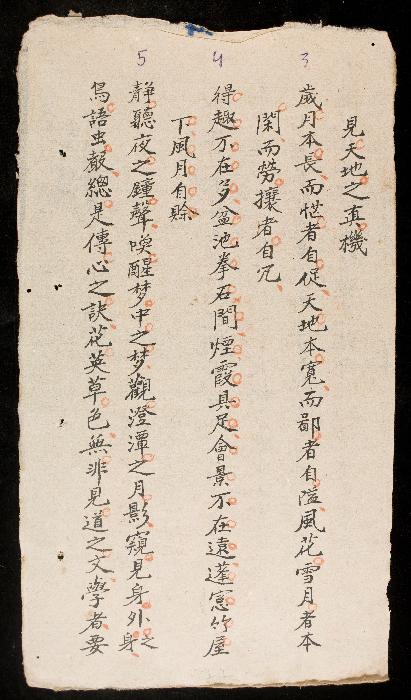 3
4
5
見天地之真機
歲月本長而忙者自促天地本寬而鄙者自隘風花雪月者本
閑而勞攘者自冗
得趣不在多盆池拳石間煙霞具足會景不在遠蓬窓竹屋
下風月自賒
靜聽夜之鐘聲喚醒梦中之梦觀澄潭之月影窺見身外之身
鳥語虫聲總是傳心之訣花英草色無非見道之文學者要